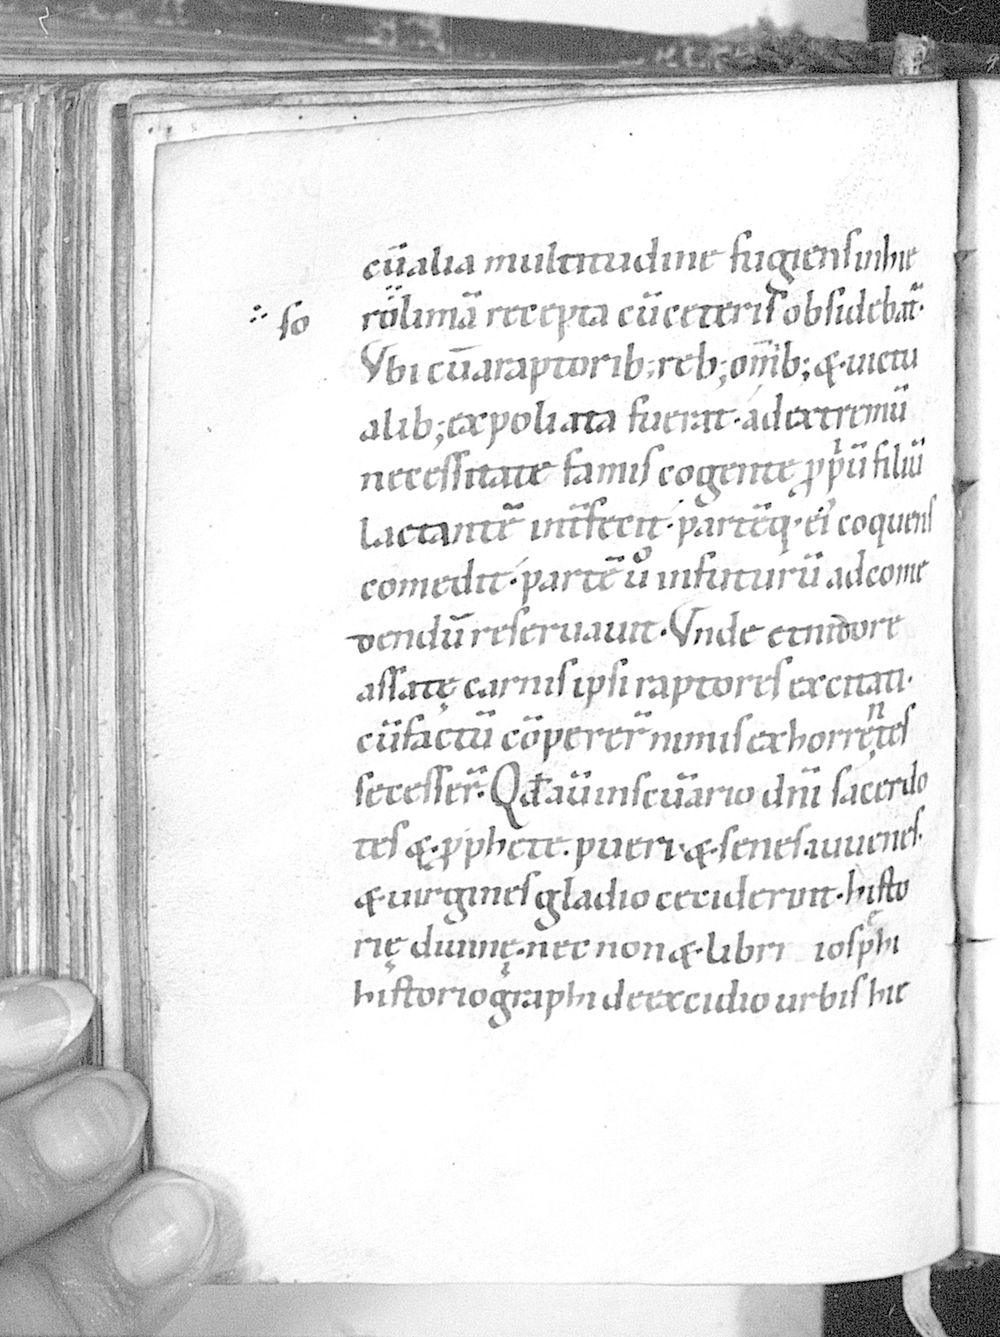 cū alia multitudine fugiens in hie
so
rolimā recepta cū ceteris obsidebat̄·
Vbi cū a raptorib; reb; om̄ib; & uictu
alib; expoliata fuerat· ad extremū
necessitate famis cogente ꝓpriū filiū
lactantē int̄fecit· partēq· ei' coquens
comedit· partē uº in futurū ad come
dendū reseruauit· Vnde et nidore
assatę carnis ipsi raptores excitati·
cū factū cōperer̄ nimis exhorrętes
n
secesser̄· Qd̄ aū in scuārio dn̄i sacerdo
tes &· ꝓphete· pueri·&·senes·iuuenes·
&·uirgines gladio ceciderunt· histo
rię diuinę· nec non &·libri iosphi
e
historiographi de excidio urbis hie